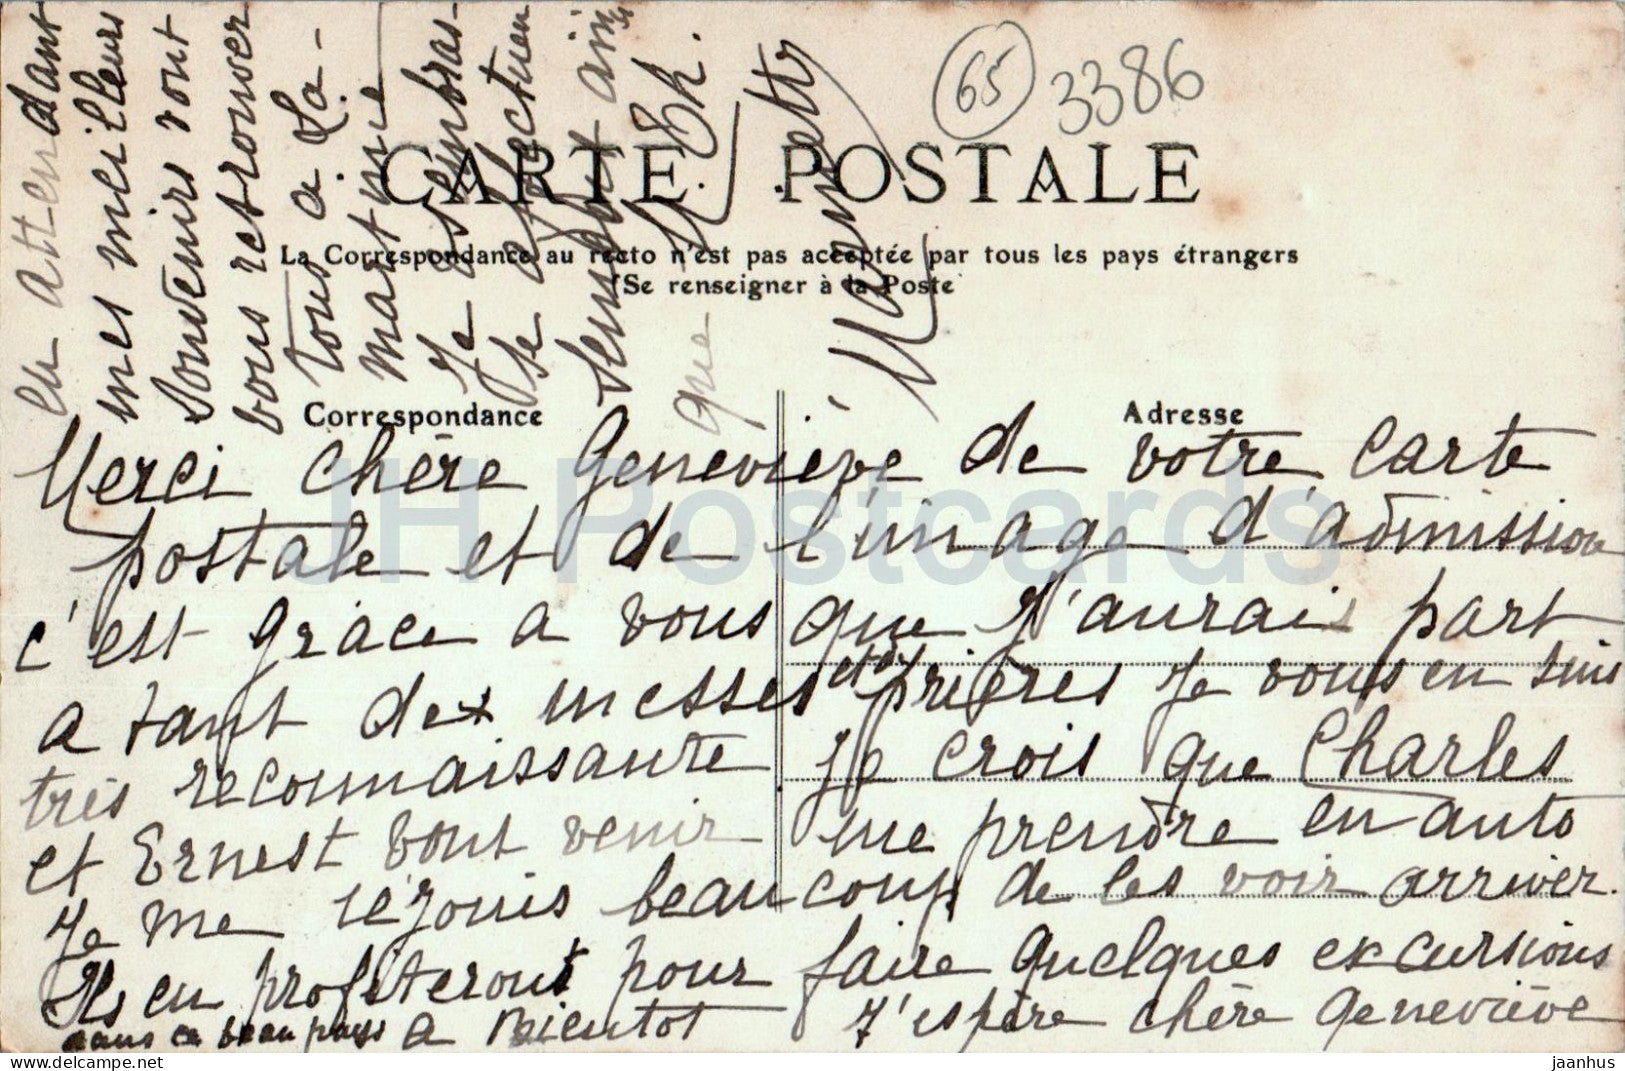 65 3386
CARTE POSTALE
La Correspondance au recto n'est pas acceptée par tous les pays étrangers
(Se renseigner à la Poste
Correspondance
Adresse
Merci chère Geneviève de votre carte
postale et de l'image d'admission
c'est grâce a vous que j'aurais part
a tant de messes et de prières je vous en suis
très reconnaissante je crois que Charles
et Ernest vont venir me prendre en auto
Je me réjouis beaucoup de les voir arriver.
Ils en profiteront pour faire quelques excursions
dans ce beau pays a bientot j'espère chère Geneviève
en attendant
mes meilleurs
souvenirs vont
vous retrouver
tous a La
martinie
Je esembras
se affectueu
sement ainsi
que M Ch.
IH Postcards
jaanhus